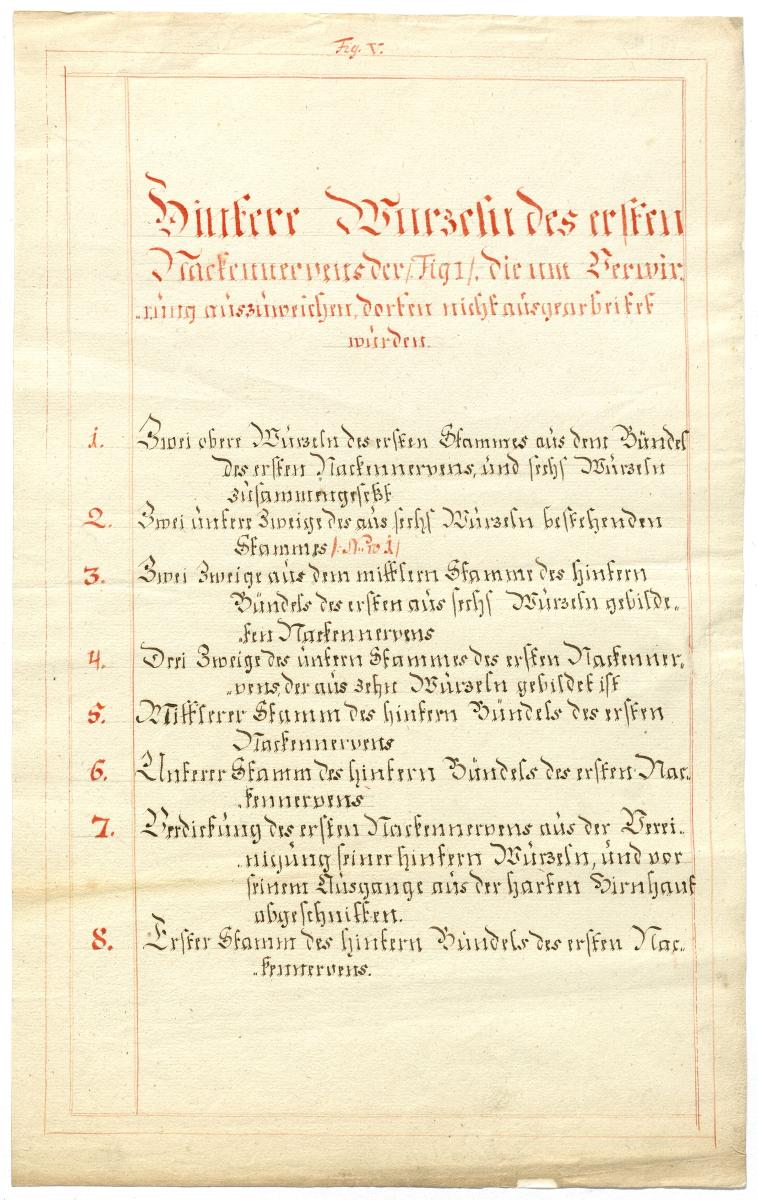 Fig. V.
Hintere Wurzeln des ersten
Nackennervens der /: Fig 1 /: die um Verwir„
„rung auszuweichen, dorten nicht ausgearbeitet
wurden.
1. Zwei obere Wurzeln des ersten Stammes aus dem Bündel
des ersten Nackennervens, und sechs Wurzeln
zusammengesetzt
2. Zwei untere Zweige des aus sechs Wurzeln bestehenden
Stammes /: Nro 1 /
3. Zwei Zweige aus dem mittlern Stamme des hintern
Bündels des ersten aus sechs Wurzeln gebilde„
„ten Nackennervens
4. Drei Zweige des untern Stammes des ersten Nackenner„
„vens, der aus zehn Wurzeln gebildet ist
5. Mittlerer Stamm des hintern Bündels des ersten
Nackennervens
6. Unterer Stamm des hintern Bündels des ersten Nac„
„kennervens
7. Verdickung des ersten Nackennervens aus der Verei„
„nigung seiner hintern Wurzeln, und vor
seinem Ausgange aus der harten Hirnhaut
abgeschnitten.
8. Erster Stamm des hintern Bündels des ersten Nac„
„kennervens.